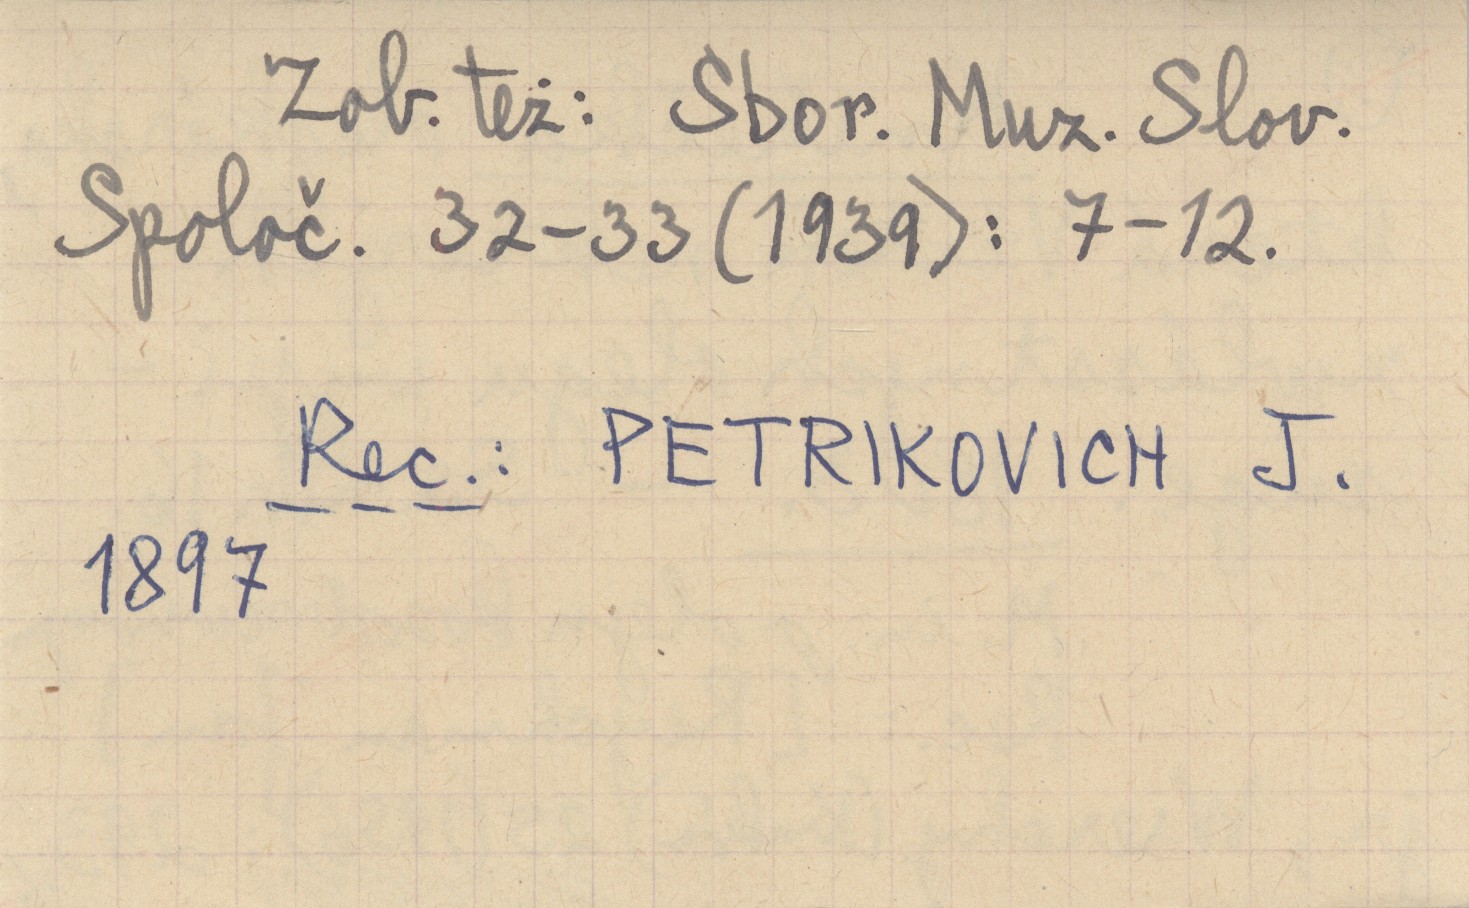 Zob. też: Sbor. Muz. Slov.
Spoloč. 32-33 (1939): 7-12.
Rec.: PETRIKOVICH J.
1897